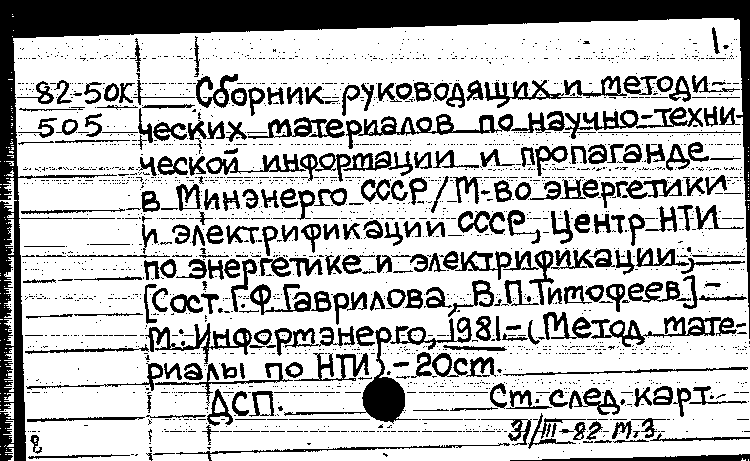 1.
82-5ОК Сборник руководящих и методи-
505 ческих материалов по научно-техни-
ческой информации и пропаганде
в Минэнерго СССР / М-во энергетики
и электрификации СССР, Центр НТИ
по энергетике и электрификации;
[Сост. Г.Ф. Гаврилова, В.П. Тимофеев]. -
М.: Информэнерго, 1981. - (Метод. мате-
риалы по НТИ). - 20 см.
ДСП. См. след. карт.
31/III-82 М.З.
8